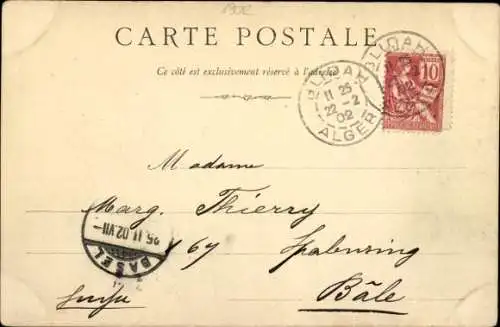 CARTE POSTALE
Ce côté est exclusivement réservé à l'adresse
BLIDAH
11 25
22 - 2
02
ALGER
BLIDAH
10
Madame
Marg. Thierry
67
Bâle
25.II.02.VII-
BASEL